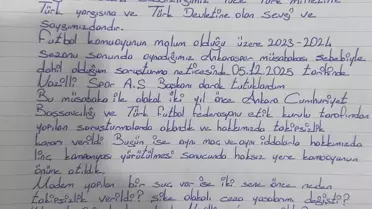 Türk yargısına ve Türk Devletine olan Sevgi ve
saygımızdandır.
Futbol kamuoyunun malum olduğu üzere 2023-2024
sezonu sonunda oynadığımız Ankaraspor müsabakası sebebiyle
dahil olduğum soruşturma neticesinde 05.12.2025 tarihinde
Nazilli Spor A.Ş Başkanı olarak tutuklandım
Bu müsabaka ile alakalı iki yıl önce Ankara Cumhuriyet
Başsavcılığı ve Türk futbol federasyonu etik kurulu tarafından
yapılan soruşturmalarda aklandık ve hakkımızda takipsizlik
kararı verildi Bugün ise aynı maç ve aynı iddialarla hakkımızda
linç kampanyası yürütülmesi sonucunda haksız yere kamuoyunun
önüne atıldık.
Madem yapılan bir suç var ise iki sene önce neden
takipsizlik verildi? şike alakalı ceza yasalarımı değişti?